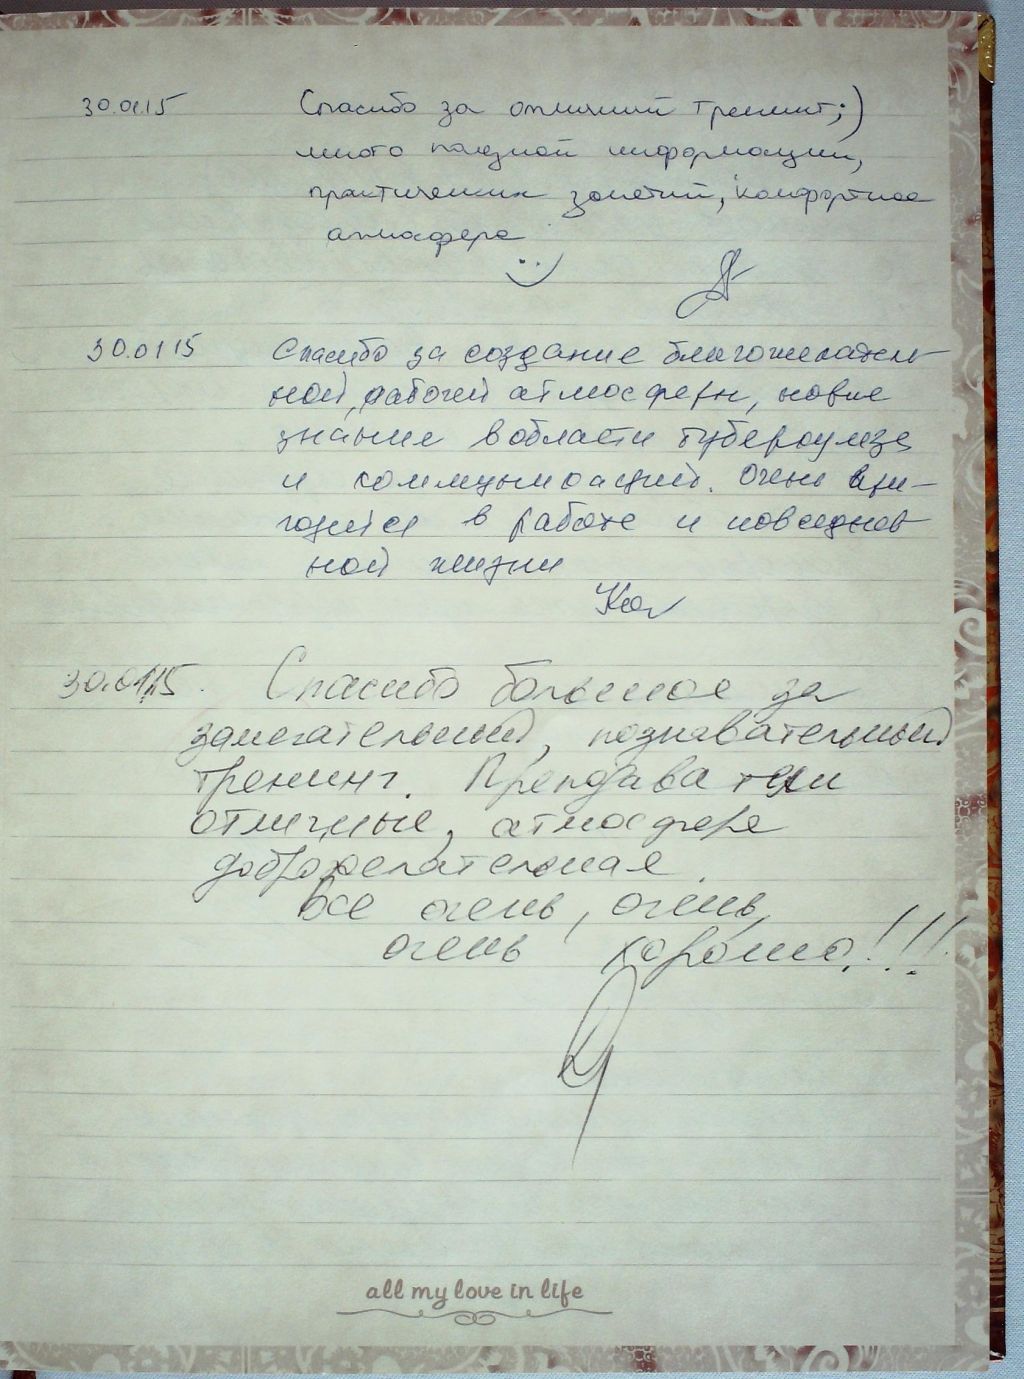 30.01.15 Спасибо за отличный тренинг ;)
много полезной информации,
практических занятий, комфортная
атмосфера
30.01 15 Спасибо за создание благожелатель-
ной, рабочей атмосферы, новые
знания в области туберкулеза
и коммуникаций. Очень при-
годится в работе и повседнев
ной жизни
30.01.15. Спасибо большое за
замечательный, познавательный
тренинг. Преподаватели
отличные, атмосфера
доброжелательная.
Все очень, очень,
очень хорошо!!!
all my love in life